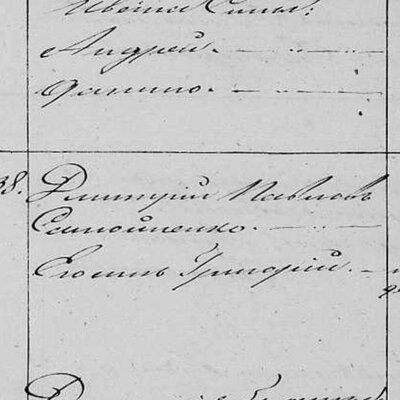 Ивана Сины:
Андрей.
Данило.
38. Дмитрій Павловъ
Самойленко.
Егосынъ Григорій.